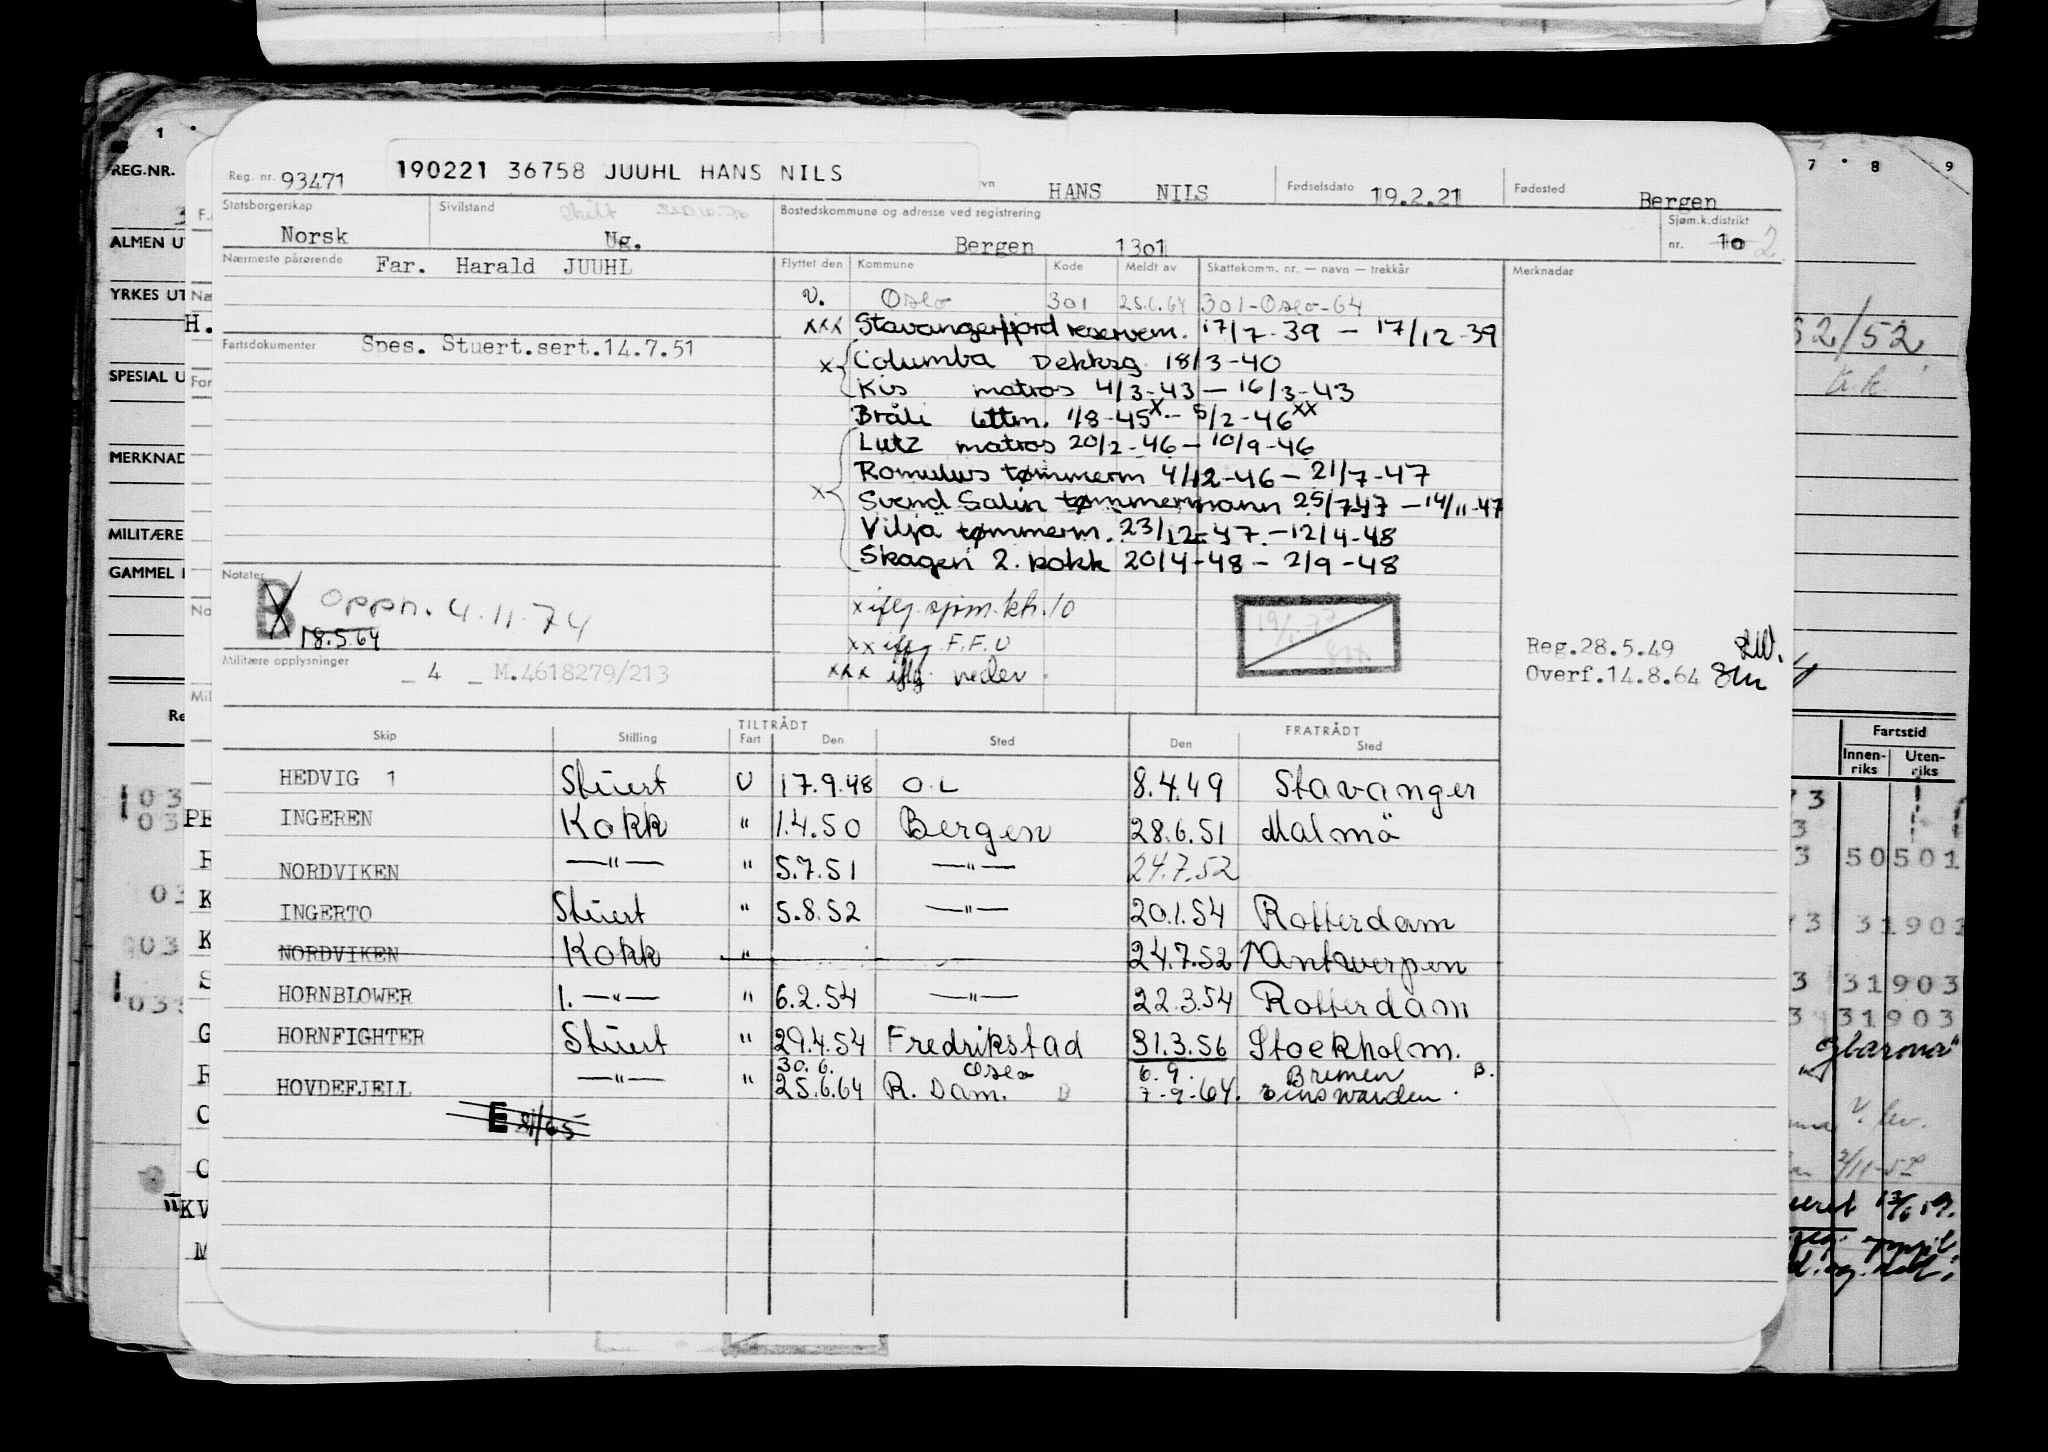 190221 36758 JUUHL HANS NILS
Reg. nr. 93471
HANS NILS
Fødselsdato 19.2.21
Fødested Bergen
Statsborgerskap Norsk
Sivilstand Ug.
Bostedskommune og adresse ved registrering
Bergen 1301
Sjøm.k.distrikt
nr. 10 2
Nærmeste pårørende Far. Harald JUUHL
Flyttet den Kommune Kode Meldt av Skattekomm. nr. — navn — trekkår
Merknader
v. Oslo 301 25.6.64 301-Oslo-64
xxx Stavangerfjord reservem. 17/7-39 — 17/12-39
Fartsdokumenter Spes. Stuert.sert.14.7.51
x Columba Dekksg 18/3-40
Kis matros 4/3-43 — 16/3-43
Bråli lettm. 1/8-45x — 5/2-46xx
Lutz matros 20/2-46 — 10/9-46
Romulus tømmerm 4/12-46 — 21/7-47
x Svend Salin tømmermann 25/7-47 — 14/11-47
Vilja tømmerm. 23/12-47. — 12/4-48
Skagen 2. kokk 20/4-48 — 2/9-48
Notater
B Oppn. 4.11.74
18.5.64
x iflg. sjøm.ktr. 10
xx iflg F.F.U
xxx iflg. reder.
Militære opplysninger
_ 4 _ M.4618279/213
Reg.28.5.49
Overf.14.8.64
Skip Stilling TILTRÅDT Fart Den Sted FRATRÅDT Den Sted
HEDVIG 1 Stuert U 17.9.48 O.L 8.4.49 Stavanger
INGEREN Kokk " 1.4.50 Bergen 28.6.51 Malmö
NORDVIKEN —"— " 5.7.51 —"— 24.7.52
INGERTO Stuert " 5.8.52 —"— 20.1.54 Rotterdam
NORDVIKEN Kokk " 24.7.52 Antwerpen
HORNBLOWER 1. —"— " 6.2.54 —"— 22.3.54 Rotterdam
HORNFIGHTER Stuert " 29.4.54 Fredrikstad 31.3.56 Stockholm.
30.6. Oslo 6.9. Bremen B.
HOVDEFJELL —"— " 25.6.64 R. Dam. 7-9-64. Einswarden
E
1
REG.NR.
ALMEN U
YRKES UT
H.
SPESIAL U
MERKNAD
MILITÆRE
GAMMEL
7 8 9
52/52
Fartstid
Innen-riks Uten-riks
50501
31903
31903
31903